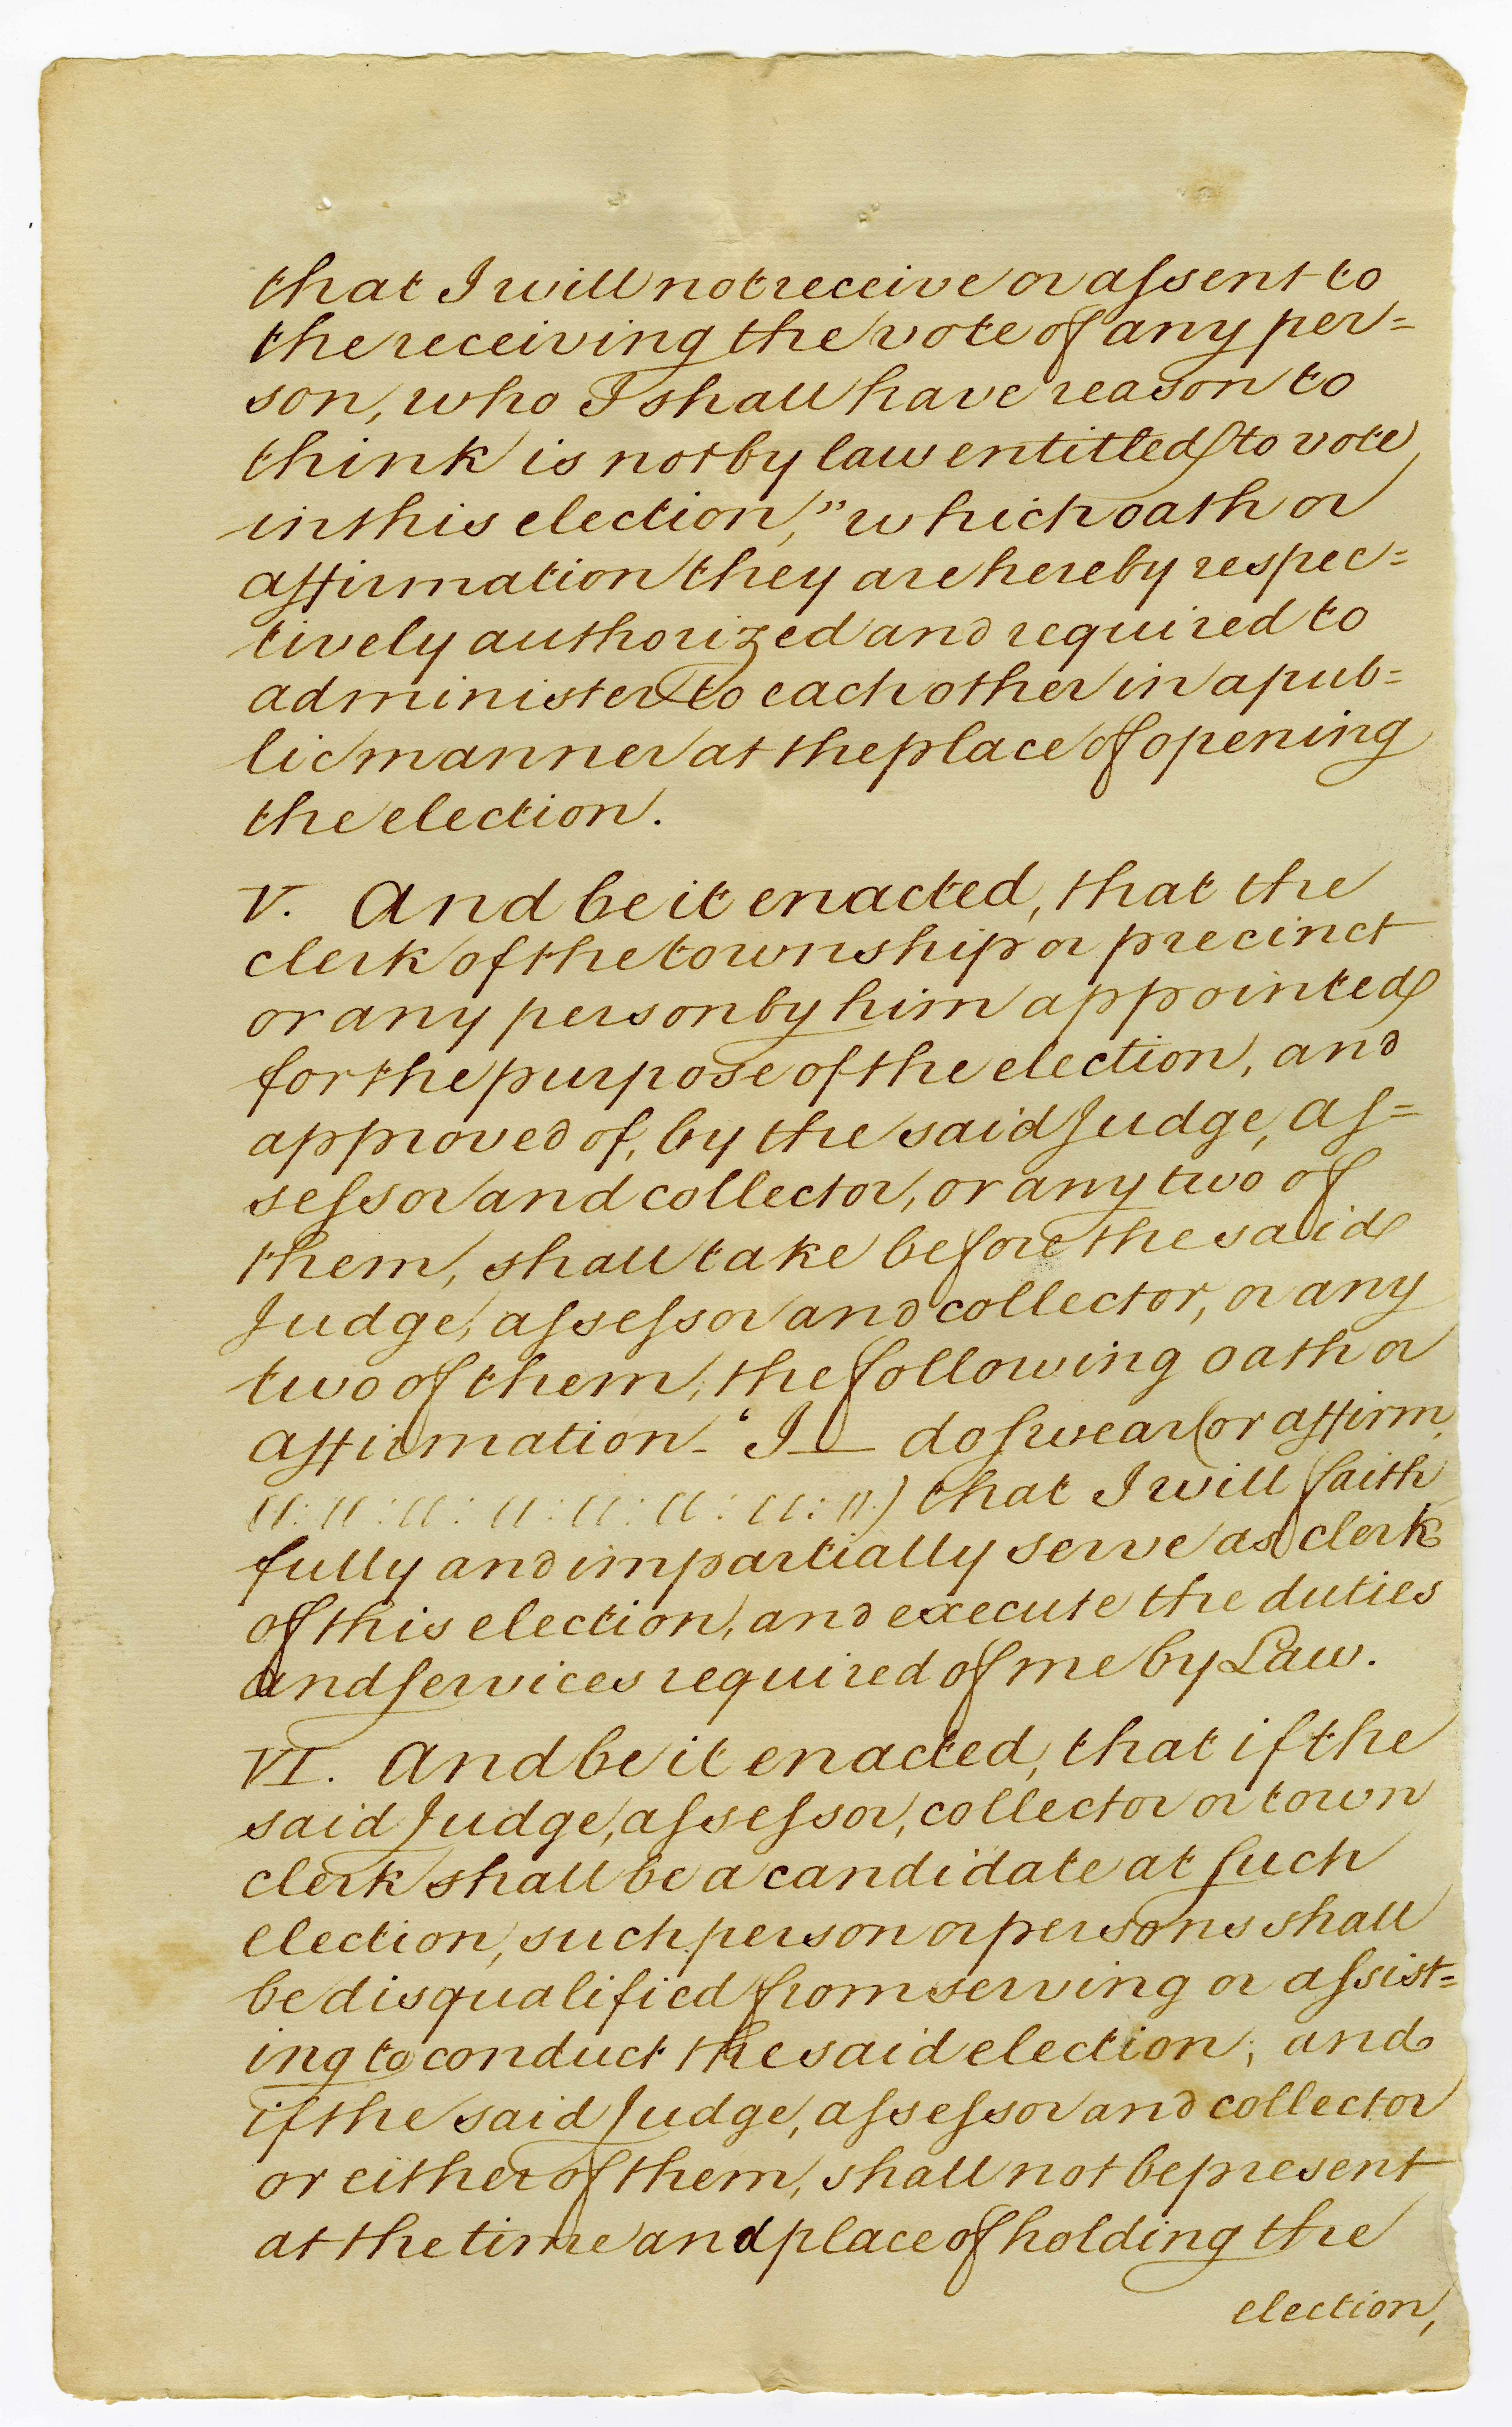 that I will not receive or aſsent to
the receiving the vote of any per=
son, who I shall have reason to
think is not by law entitled to vote
in this election," which oath or
affirmation they are hereby respec=
tively authorized and required to
administer to each other in a pub=
lic manner at the place of opening
the election.
V. And be it enacted, that the
clerk of the township or precinct
or any person by him appointed
for the purpose of the election, and
approved of, by the said Judge, aſ=
seſsor and collector, or any two of
them, shall take before the said
Judge, aſseſsor and collector, or any
two of them, the following oath or
affirmation - "I — do ſwear (or affirm,
〃:〃:〃:〃:〃:〃:〃:〃.) that I will faith
fully and impartially serve as clerk
of this election, and execute the duties
and ſervices required of me by Law.
VI. And be it enacted, that if the
said Judge, aſseſsor, collector or town
clerk shall be a candidate at ſuch
election, such person or persons shall
be disqualified from serving or aſsist=
ing to conduct the said election; and
if the said Judge, aſseſsor and collector
or either of them, shall not be present
at the time and place of holding the
election,